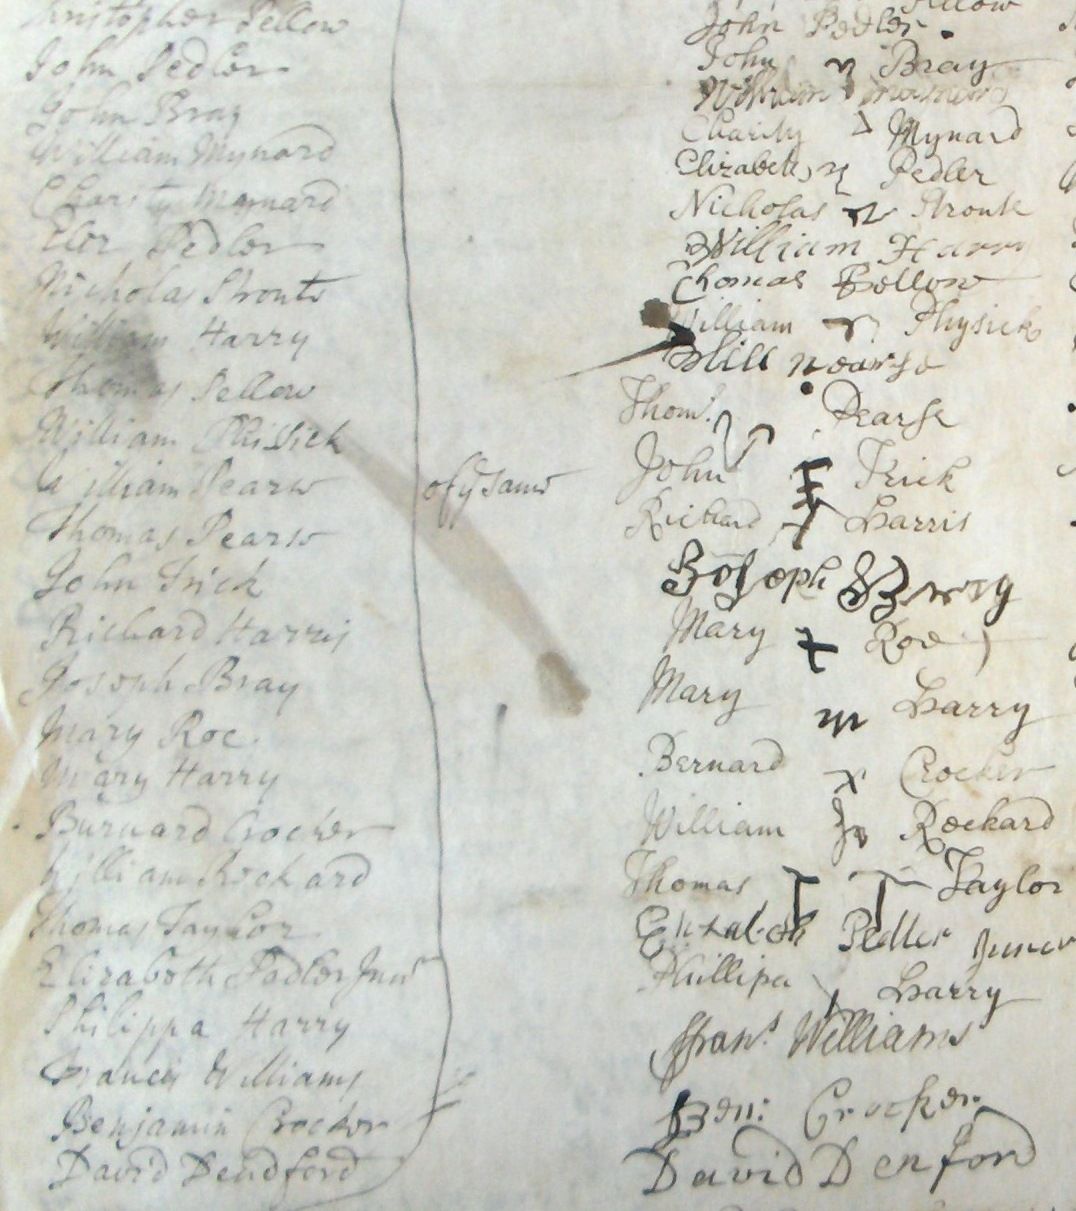 Christopher Pellow
John Pedler
John Bray
William Mynard
Charity Mynard
Eler Pedler
Nicholas Prout
William Harry
Thomas Pellow
William Phissick
William Pearse
Thomas Pearse
John Trick
Richard Harris
Joseph Bray
Mary Roe
Mary Harry
Burnard Crocker
William Rickard
Thomas Taylor
Elizabeth Pedler Junr
Philippa Harry
Francis Williams
Benjamin Crocker
David Dendford
of ye same
John Pedler
John Bray
William
Charity Mynard
Elizabeth Pedler
Nicholas Proutt
William Harry
Thomas Pellow
William Physick
Will pearse
Thoms. Pearse
John Trick
Richard Harris
Joseph Bray
Mary Roe
Mary Harry
Bernard Crocker
William Rockard
Thomas T T Taylor
Elizabeth Pedler Juner
Phillipa Harry
ffrans. Williams
Ben: Crocker
David Denford